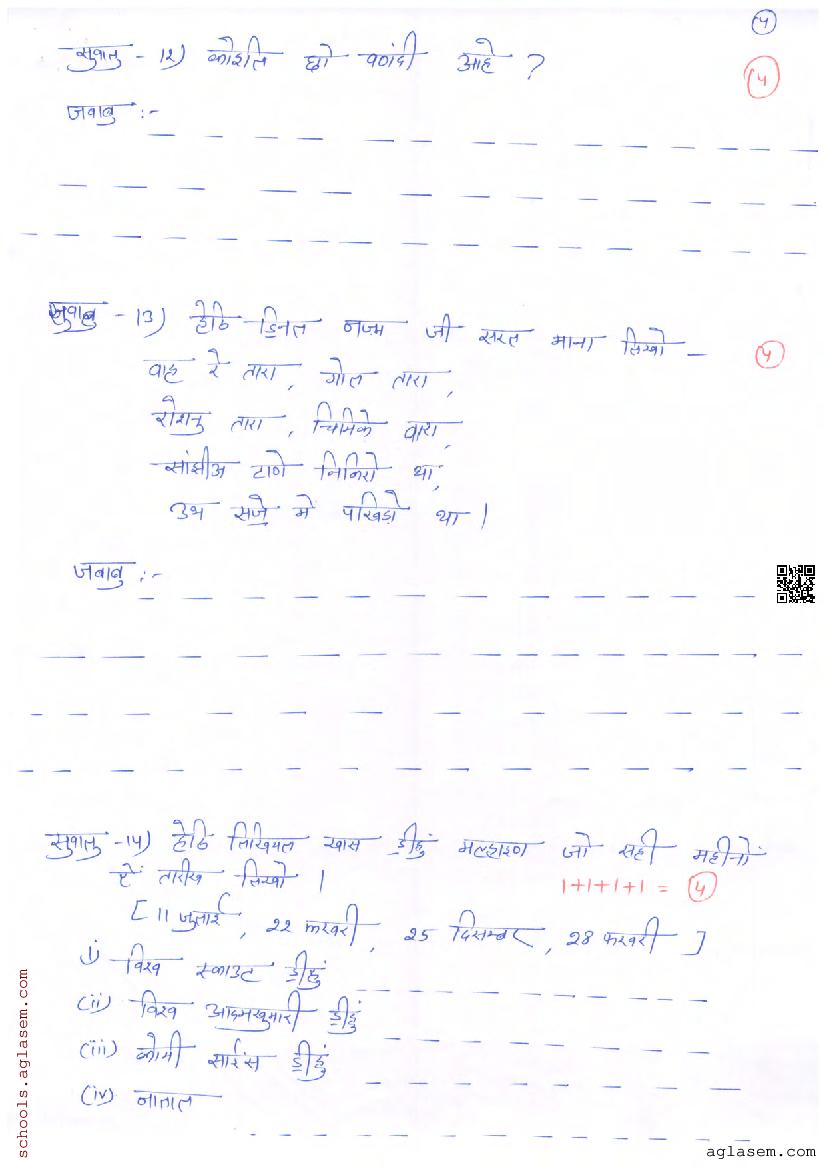 4
सुवालु - 12) कोशिल छो वणंदी आहे ?
4
जवाबु :-
सुवालु - 13) हेठि डिनल नज़्म जी सरल माना लिखो -
4
वाह रे तारा, गोल तारा,
रोशनु तारा, चिमिके वारा,
सांझीअ टाणे निकिरो था,
उभ सजे में पखिड़ो था |
जवाबु :-
सुवालु -14) हेठि लिखियल खास डीहुं मल्हाइण जो सही महीनों
ऐं तारीख लिखो |
1+1+1+1 = 4
[ 11 जुलाई, 22 फरवरी, 25 दिसम्बर, 28 फरवरी ]
i) विश्व स्काउट डीहुं
(ii) विश्व आदमशुमारी डीहुं
(iii) कौमी साईंस डीहुं
(iv) नाताल
schools.aglasem.com
aglasem.com